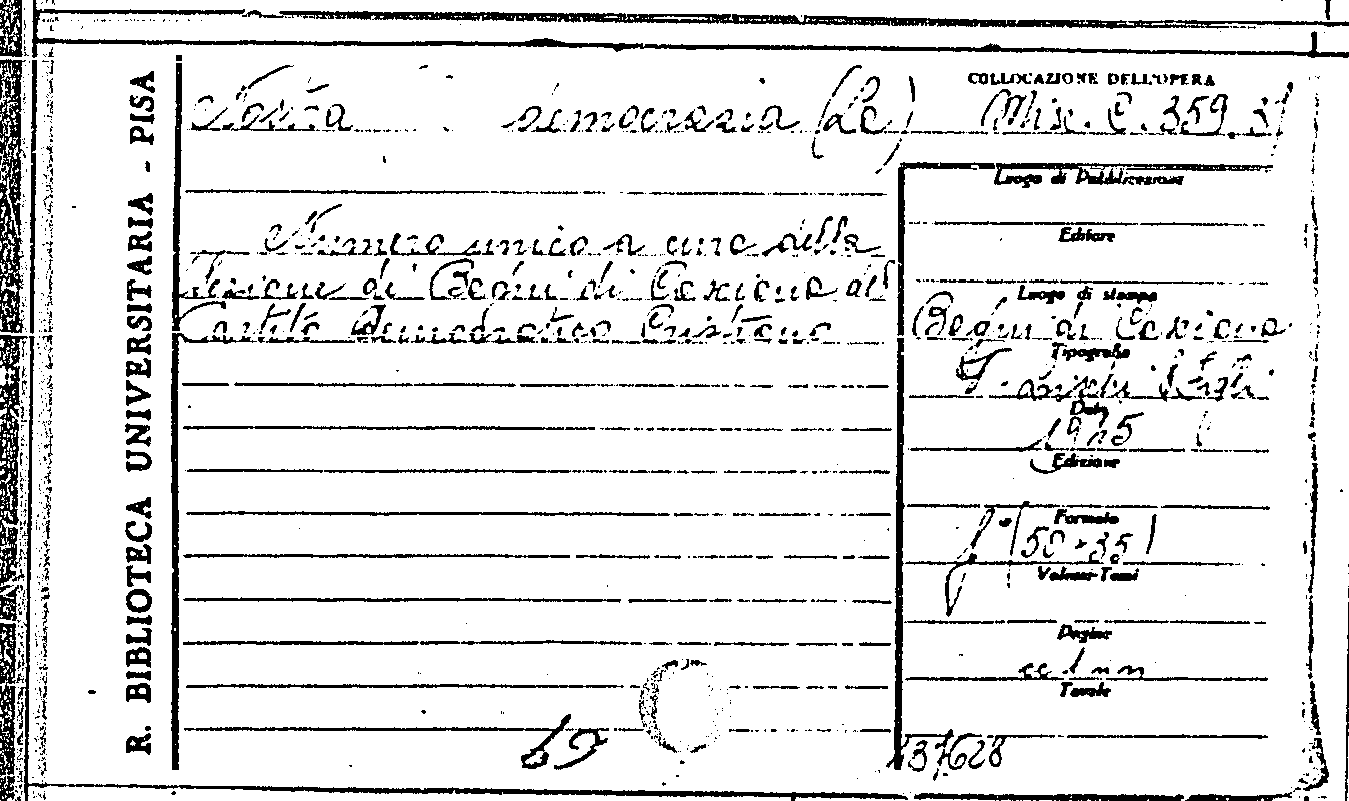 R. BIBLIOTECA UNIVERSITARIA - PISA
Nostra democrazia (La)
COLLOCAZIONE DELL'OPERA
Misc. C. 359.31
Luogo di Pubblicazione
Numero unico a cura della
Sezione di Bagni di Casciana del
Partito Democratico Cristiano
Editore
Luogo di stampa
Bagni di Casciana
Tipografia
Lischi & Figli
Data
Edizione
Formato
(50×35)
Volume-Tomi
Pagine
cc 1 nn
Tavole
69
137628